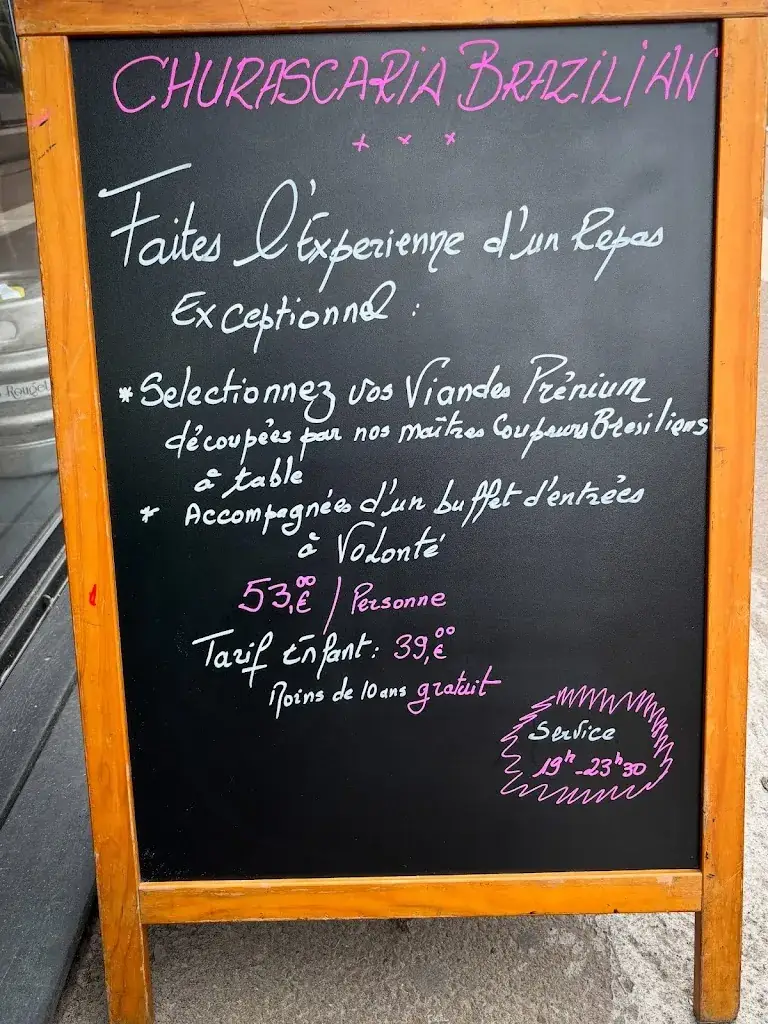 CHURASCARIA BRAZILIAN
+ + +
Faites l'Experienne d'un Repas
Exceptionnel :
* Selectionnez vos Viandes Prénium
découpées par nos maîtres Coupeurs Bresiliens
à table
* Accompagnées d'un buffet d'entrées
à Volonté
53,00€ / Personne
Tarif Enfant : 39,00€
Moins de 10 ans gratuit
Service
19h - 23h30
Rouget